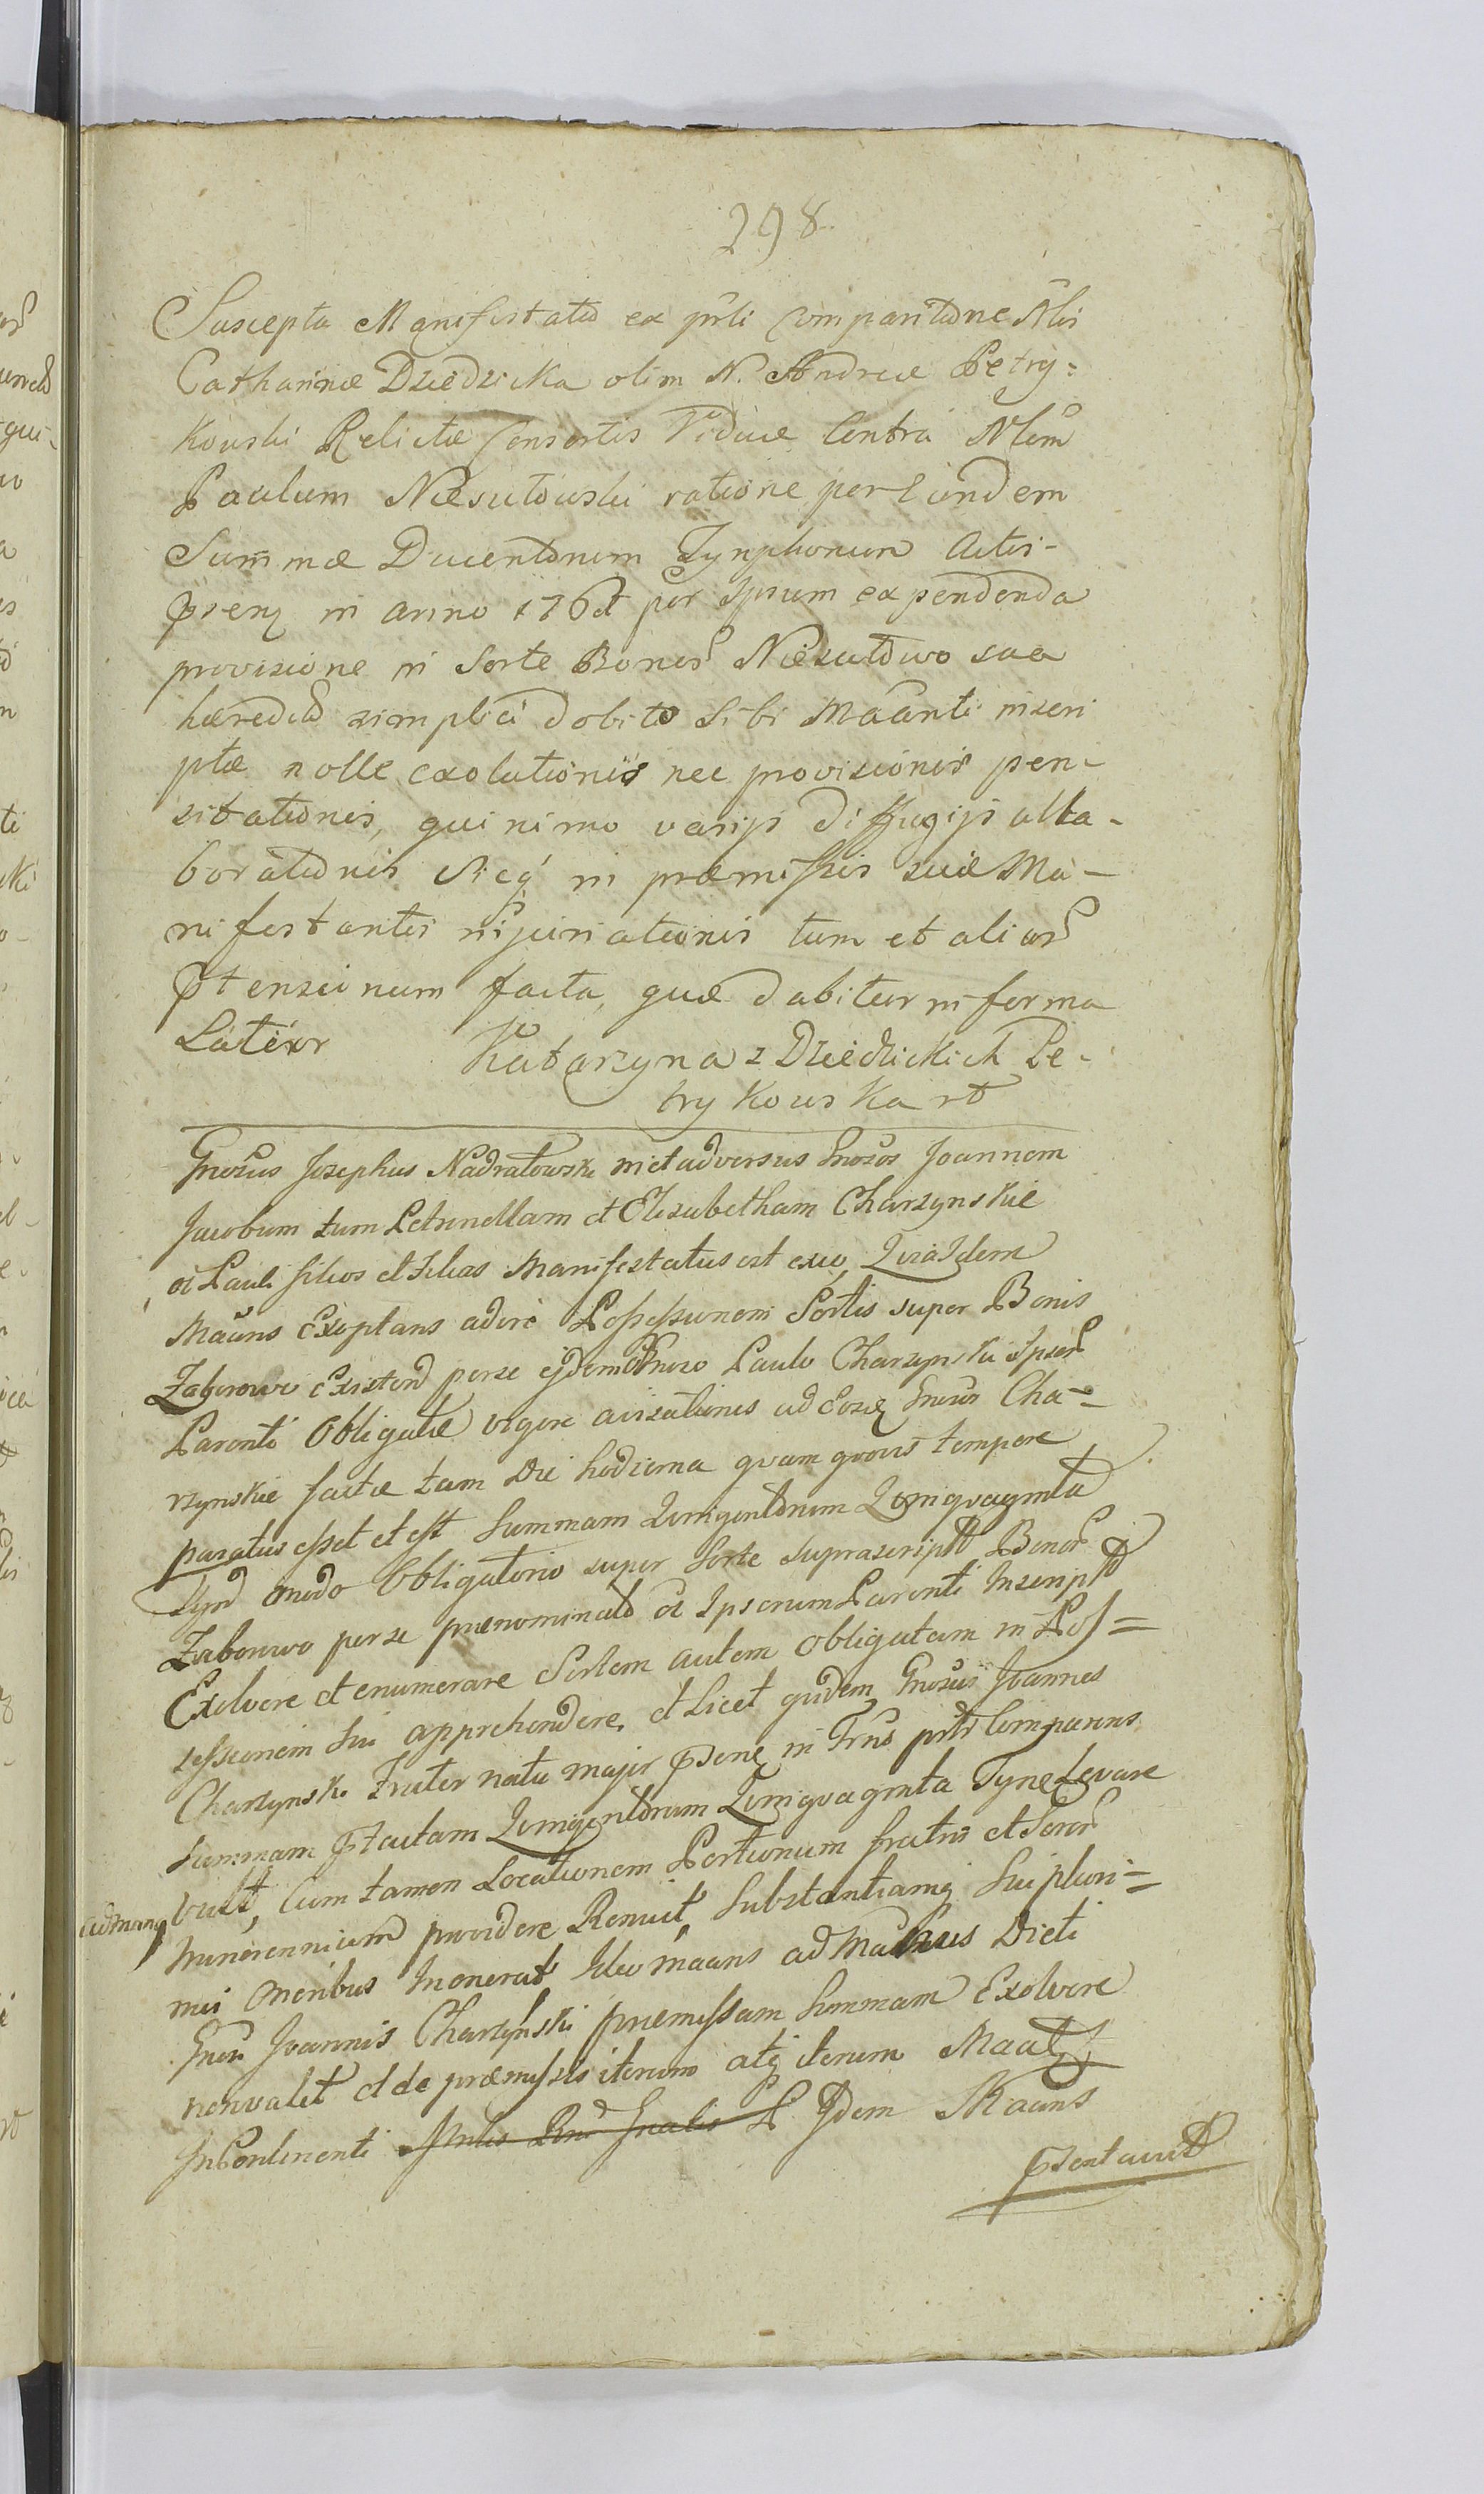 298
Suscepta Manifestatio ex prli Comparitione Nlis
Catharinæ Dziedzicka olim N. Andreæ Petry=
kowski Relictæ Consortis Viduæ Contra Nlem
Paulum Niesułowski ratione per Eundem
Summæ Ducentorum Tynphonum Actis-
prenz in anno 176 per Ipsum expendenda
provisione in Sorte Bonor Niesułowo sua
hæredita simplici debito Sibi Maanti inscri
ptæ nolle exolutionis nec provisionis pen-
sitationis, quinimo varijs diffugijs alla-
borationis Sicq in præmissis suæ Ma-
nifestantis injuriationis tum et alior
ptensinum facta, quæ dabitur in forma
Latior Katarzyna z Dziedzickich Pe-
trykowska rt
Gnosus Josephus Nadratowski in et adversus Gnosos Joannem
Jacobum tum Petrunellam et Elisabetham Charzynskie
ol Pauli filios et Filias Manifestatus est quia Idem
Maans Exoptans adire Possessionem Sortis super Bonis
Zaborowo Existen per se ejdem Gnoso Paulo Charzynski Ipsor
Parenti Obligatæ vigore avisationis ad Eosq Gnosos Cha-
rzynskie factæ tam Die hodierna quam quovis tempore
paratus esset et est Summam Quingentorum Quinquaginta
Tynf modo Obligatorio super Sorte suprascript Bonor
Zaborowo per se prænominato ol Ipsorum Parenti Inscript
Exolvere et enumerare Sortem autem obligatam in Pos=
sessionem Sui apprehendere, et Licet quidem Gnosus Joannes
Charzynski Frater natu major prnz in Trno prtis Comparens
Summam ptactam Quingentorum Quinquaginta Tynf Levare
vult, Cum tamen Locationem Portionum fratris et Soror
minorennium providere Renuit, Substantiamq Sui pluri=
mis Oneribus Inonerat Ideo maans ad Manus Dicti
Gnosi Joannis Charzynski præmissam Summam Exolvere
non valet et de præmissis iterum atq iterum Maat
In Continenti Idem Maans
ptentavit